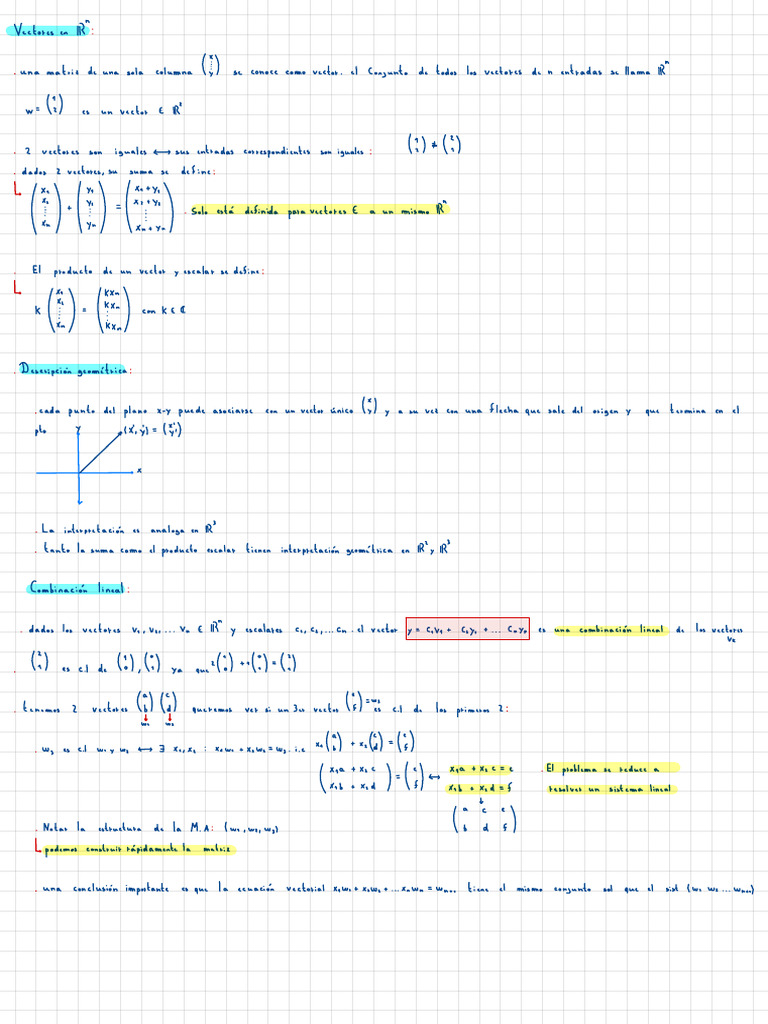 Vectores en ℝⁿ:
. una matriz de una sola columna (x ⋮ y) se conoce como vector. el Conjunto de todos los vectores de n entradas se llama ℝⁿ
w = (1 2) es un vector ∈ ℝ²
. 2 vectores son iguales ⟷ sus entradas correspondientes son iguales: (1 2) ≠ (2 1)
. dados 2 vectores, su suma se define:
(x₁ x₂ ⋮ xₙ) + (y₁ y₂ ⋮ yₙ) = (x₁ + y₁ x₂ + y₂ ⋮ xₙ + yₙ) . Solo está definida para vectores ∈ a un mismo ℝⁿ
. El producto de un vector y escalar se define:
k (x₁ x₂ ⋮ xₙ) = (kxₙ kxₙ ⋮ kxₙ) con k ∈ ℂ
. Descripción geométrica:
. cada punto del plano x-y puede asociarse con un vector único (x y) y a su vez con una flecha que sale del origen y que termina en el
pto y (x', y') = (x' y')
x
. La interpretación es analoga en ℝ³
. tanto la suma como el producto escalar tienen interpretación geométrica en ℝ² y ℝ³
Combinación lineal:
. dados los vectores v₁, v₂, ... vₙ ∈ ℝⁿ y escalares c₁, c₂, ... cₙ. el vector y = c₁v₁ + c₂v₂ + ... cₙvₚ es una combinación lineal de los vectores
vₖ
. (2 1) es c.l de (1 0), (0 1) ya que 2(1 0) + 1(0 1) = (2 1)
. tenemos 2 vectores (a b) (c d) queremos ver si un 3er vector (e f) = w₃ es c.l de los primeros 2:
w₁ w₂
. w₃ es c.l w₁ y w₂ ⟷ ∃ x₁, x₂ : x₁w₁ + x₂w₂ = w₃. i.e x₁(a b) + x₂(c d) = (e f)
(x₁a + x₂c x₁b + x₂d) = (e f) ⟷ x₁a + x₂c = e . El problema se reduce a
x₁b + x₂d = f resolver un sistema lineal
(a c e
b d f)
. Notar la estructura de la M.A: (w₁, w₂, w₃)
podemos construir rápidamente la matriz
. una conclusión importante es que la ecuación vectorial x₁w₁ + x₂w₂ + ... xₙwₙ = wₙ₊₁ tiene el mismo conjunto sol que el sist (w₁ w₂ ... wₙ₊₁)